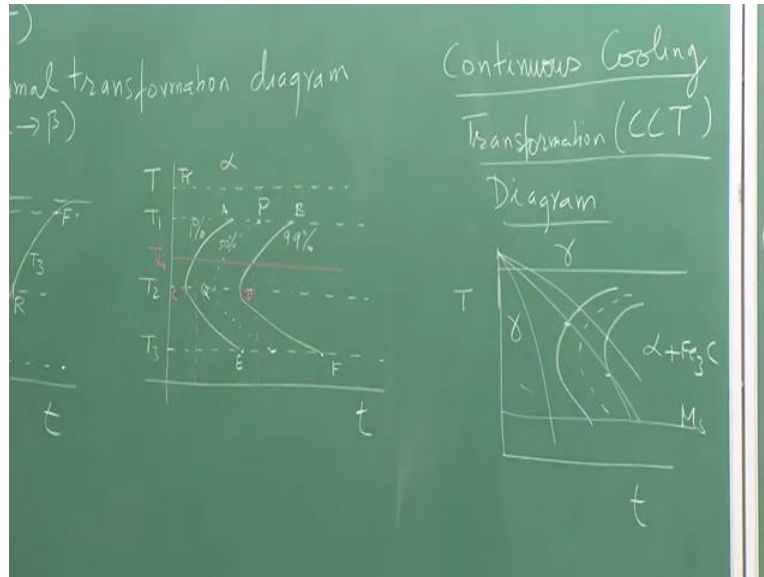 mal transformation diagram
→ β)
F
T3
R
t
T
α
T1
A
P
B
1%
50%
99%
T2
T3
E
F
t
Continuous Cooling
Transformation (CCT)
Diagram
γ
T
γ
α+Fe3C
Ms
t